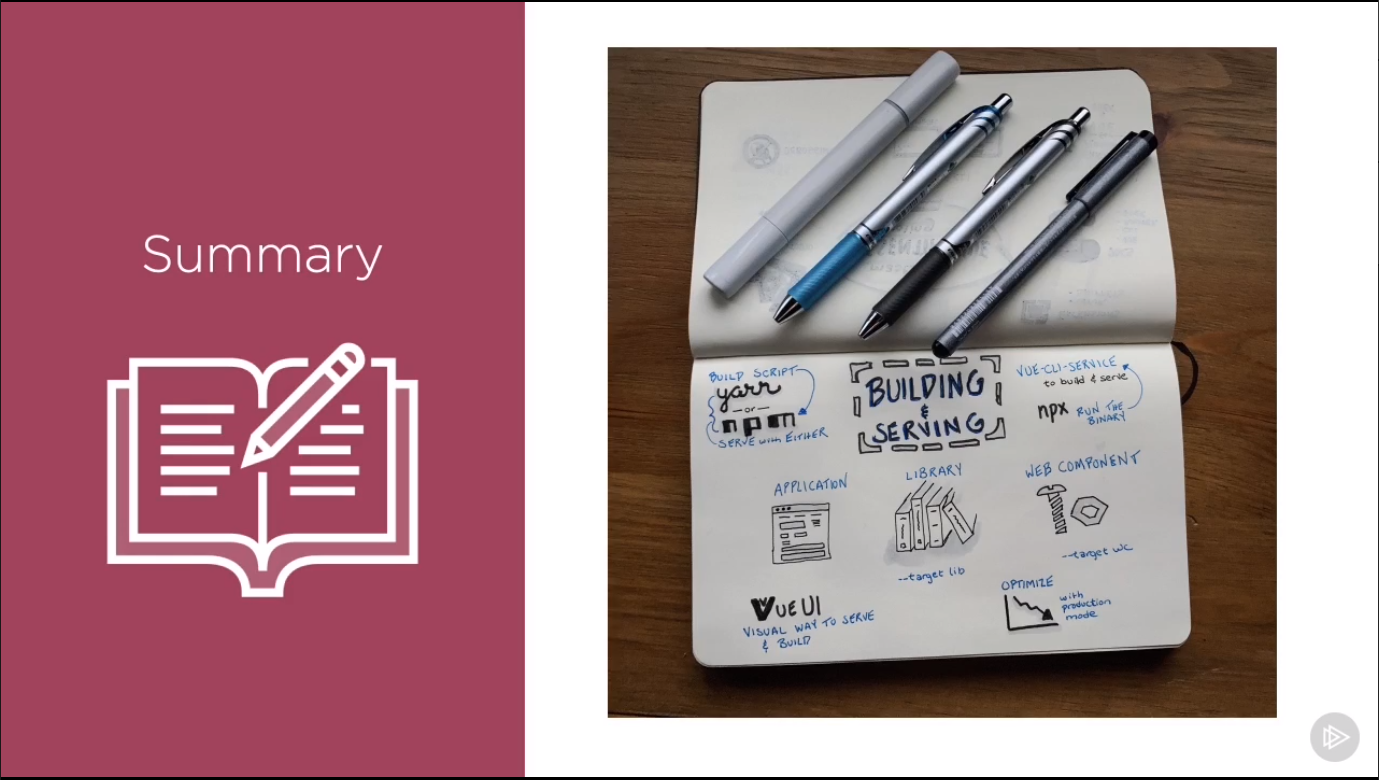 Summary
BUILD SCRIPT
yarn
-or-
npm
SERVE with EITHER
BUILDING
&
SERVING
VUE-CLI-SERVICE
to build & serve
npx RUN THE
BINARY
APPLICATION
LIBRARY
--target lib
WEB COMPONENT
--target wc
VUE UI
VISUAL WAY TO SERVE
& BUILD
OPTIMIZE
with
production
mode